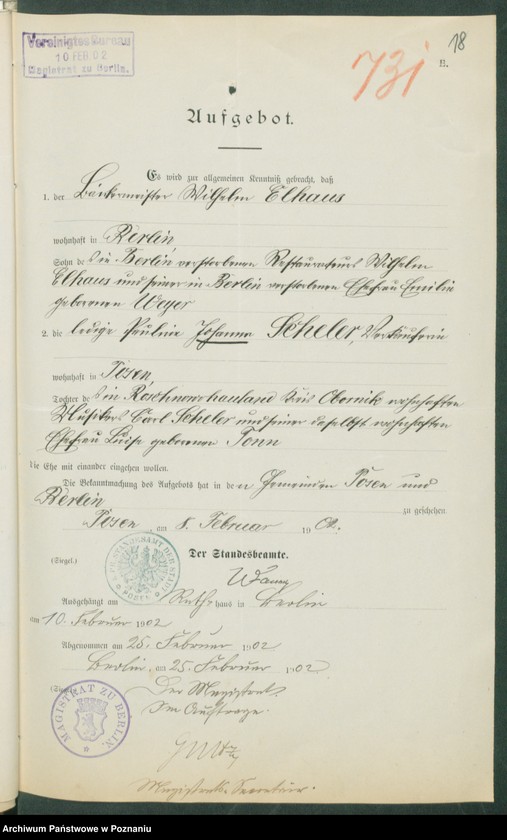 Vereinigtes Bureau
10 FEB. 02
Magistrat zu Berlin.
731
18
B.
Aufgebot.
Es wird zur allgemeinen Kenntniß gebracht, daß
1. der Bäckermeister Wilhelm Elhaus
wohnhaft in Berlin
Sohn des in Berlin verstorbenen Restaurateurs Wilhelm
Elhaus und seiner in Berlin verstorbenen Ehefrau Emilie
geborenen Weyer
2. die ledige Pauline Johanna Scheler, Verkäuferin
wohnhaft in Posen
Tochter des in Kreis Obornik wohnhaften
Musikers Carl Scheler und seiner daselbst wohnhaften
Ehefrau Luise geborenen Tonn
die Ehe mit einander eingehen wollen.
Die Bekanntmachung des Aufgebots hat in den Gemeinden Posen und
Berlin zu geschehen.
Posen, am 8. Februar 1902.
Der Standesbeamte.
(Siegel.)
STANDESAMT DER STADT POSEN
Ausgehängt am Rathshaus in Berlin
am 10. Februar 1902
Abgenommen am 25. Februar 1902
Berlin, am 25. Februar 1902
(Siegel.)
Der Magistrat.
Im Auftrage.
MAGISTRAT ZU BERLIN.
Magistrats-Secretair.
Archiwum Państwowe w Poznaniu